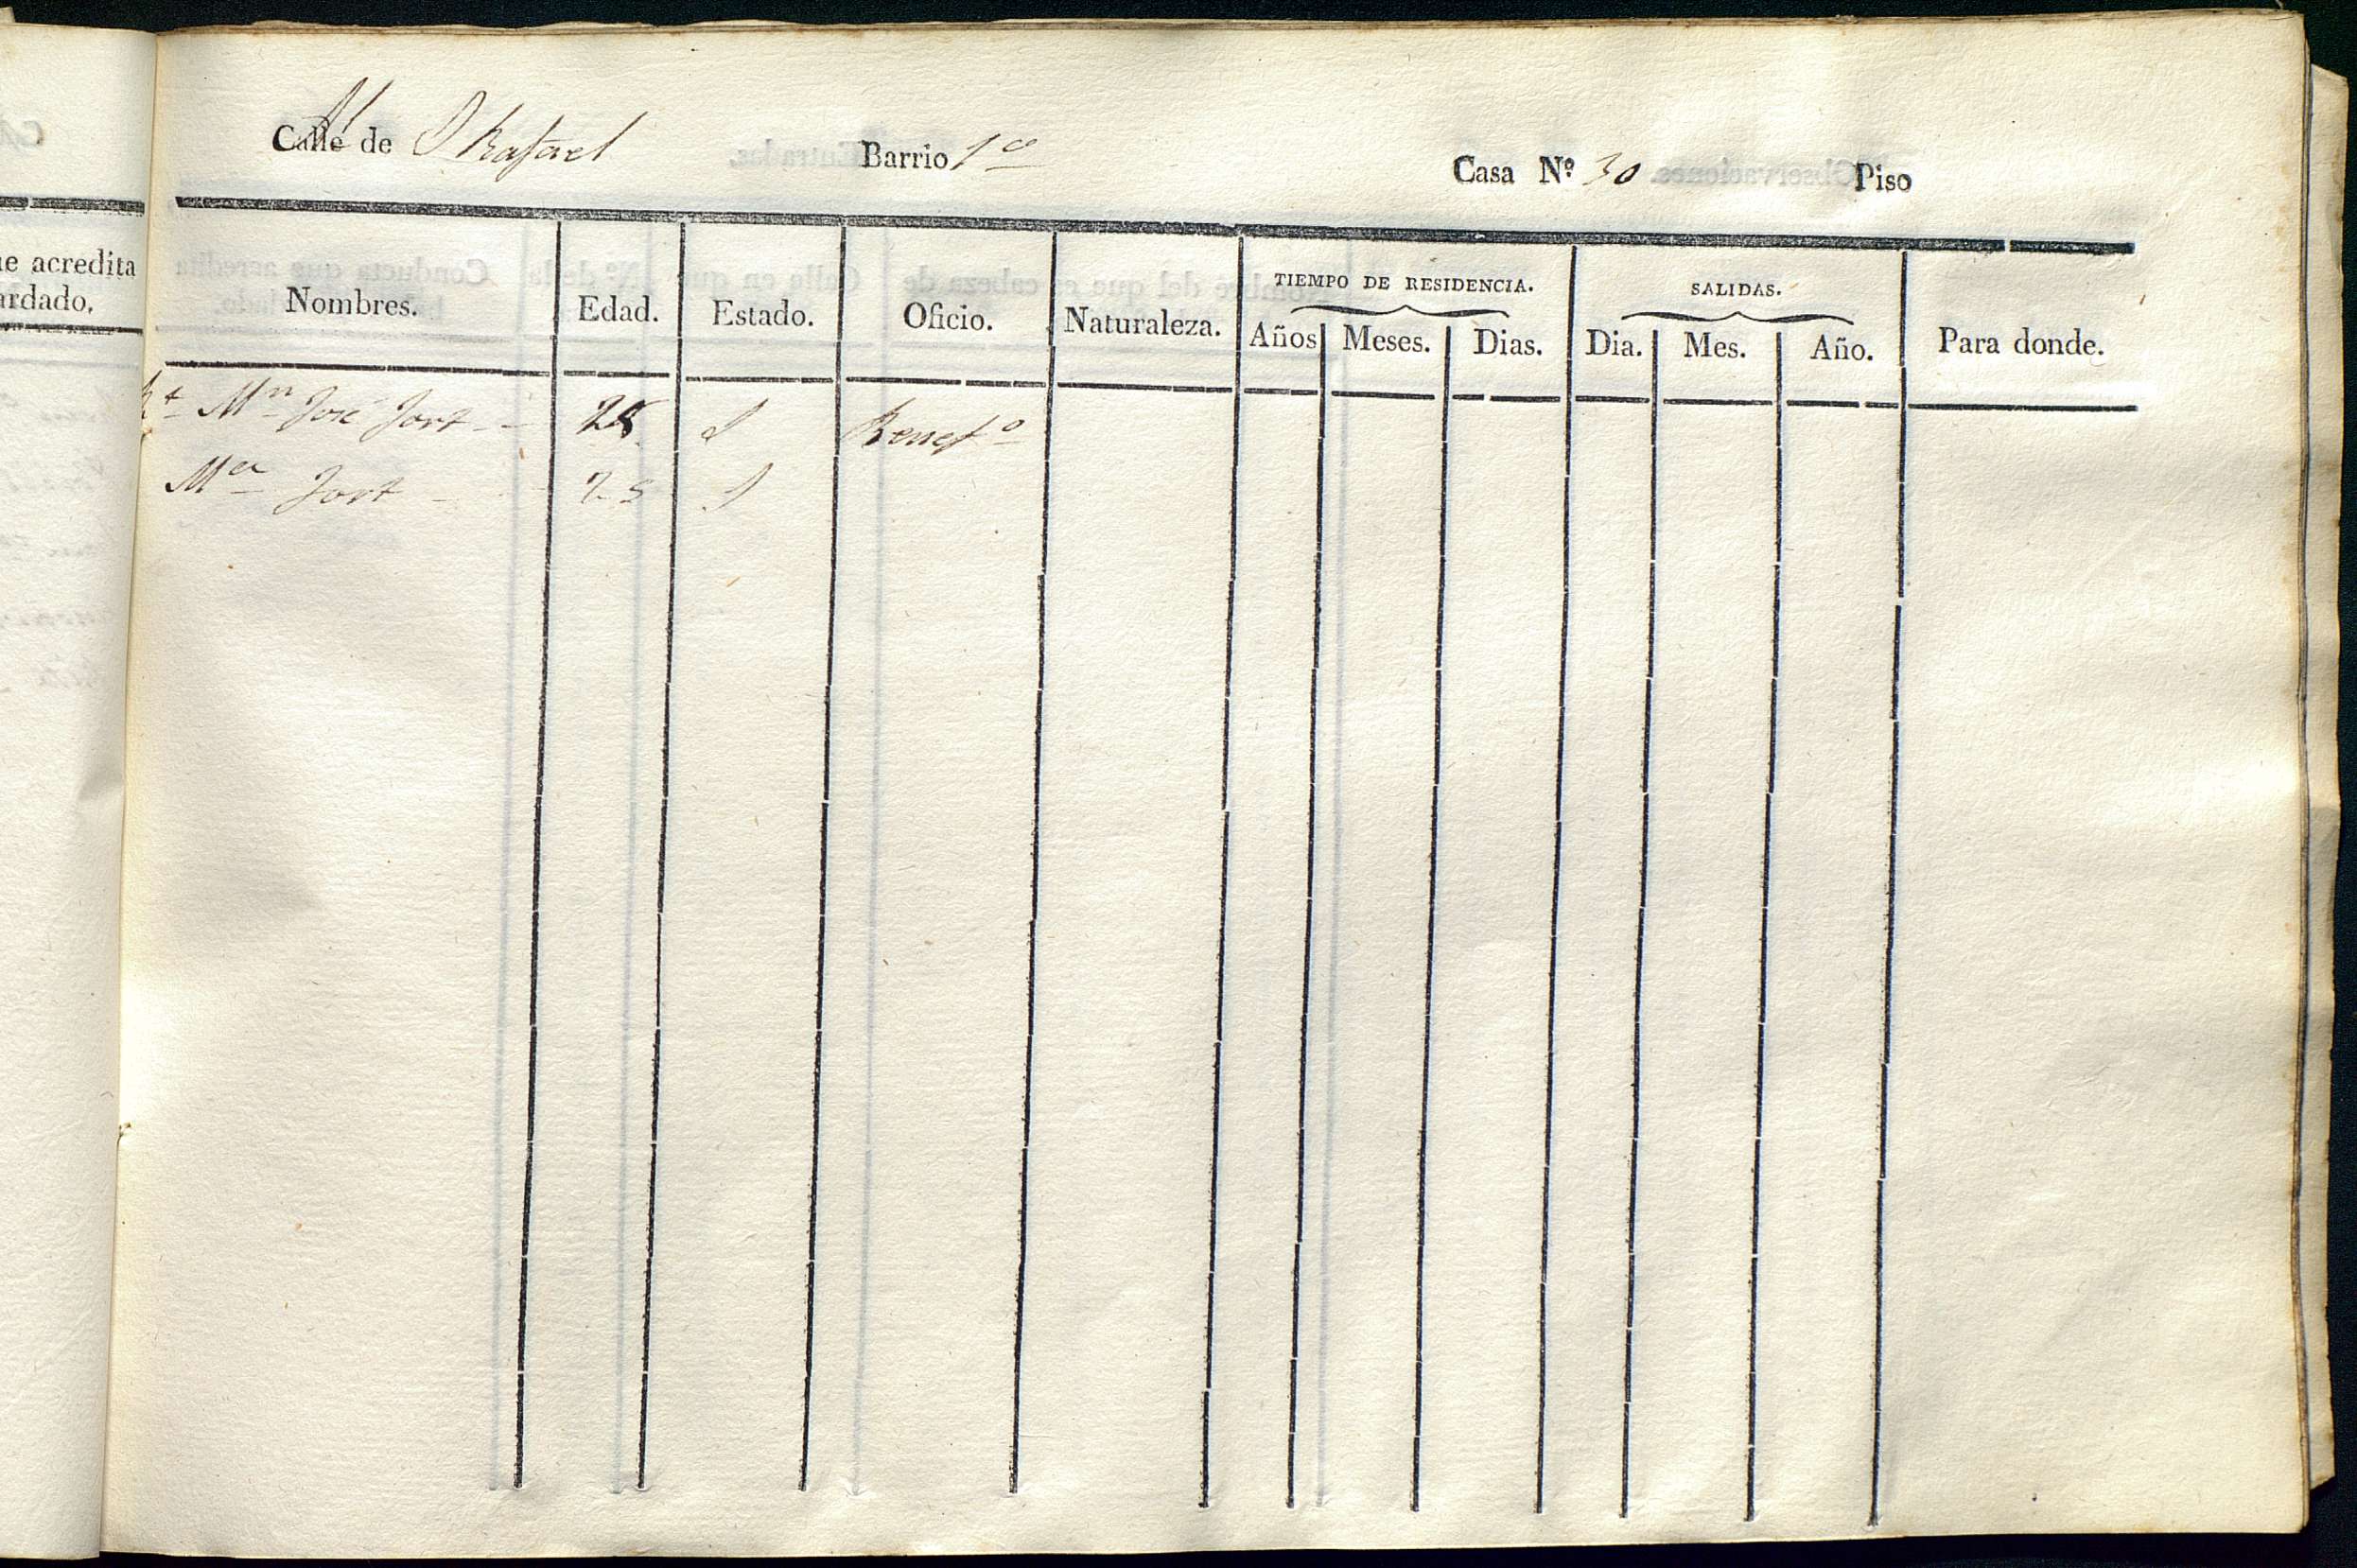 Calle de S Rafael Barrio 1º Casa Nº 30 Piso
ue acredita
ardado,
Nombres. Edad. Estado. Oficio. Naturaleza. TIEMPO DE RESIDENCIA. SALIDAS. Para donde.
Años Meses. Dias. Dia. Mes. Año.
Mn José Fort 28 S Benefo
Ma Fort 25 S